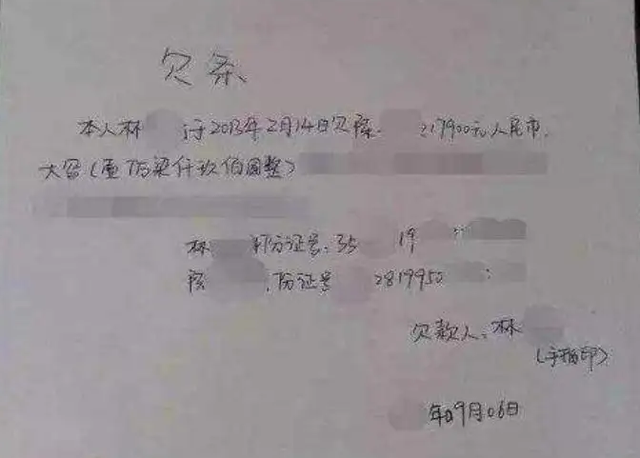 欠条
本人林 于2013年2月14日欠陈 217900元人民币,
大写( 万 仟玖佰圆整)
林 份证号:35 19
份证号 2819950
欠款人:林
(手指印)
年 9月06日